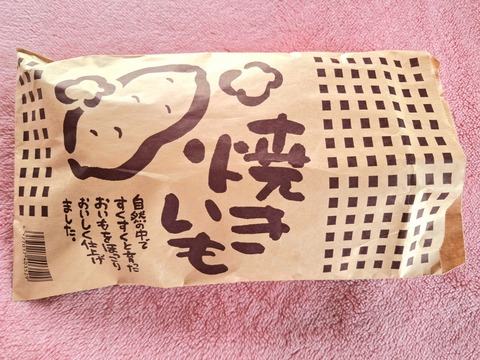 焼き
いも
自然の中で
すくすくと育った
おいもをほっこり
おいしく仕上げ
ました。